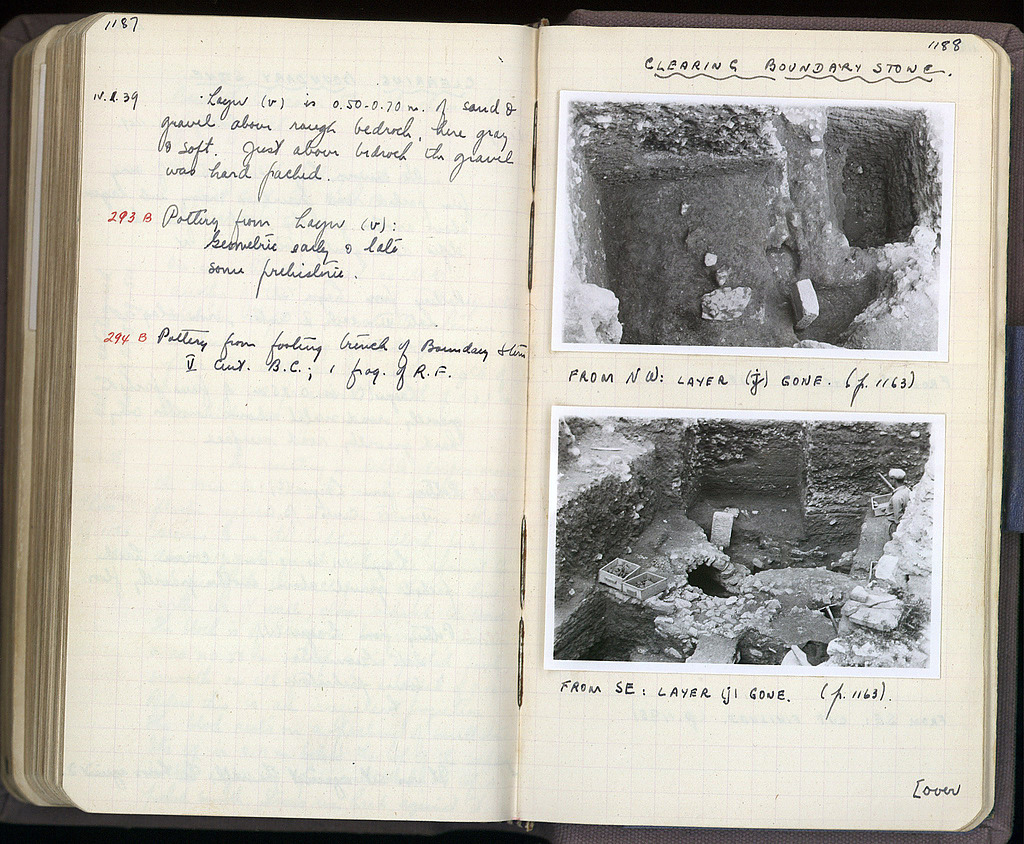 1187
IV.2.39 Layer (v) is 0.50-0.70 m. of sand &
gravel above rough bedrock, here gray
& soft. Just above bedrock the gravel
was hard packed.
293 B Pottery from Layer (v):
Geometric early & late
some prehistoric.
294 B Pottery from footing trench of Boundary Stone
V Cent. B.C.; 1 frag. of R.F.
1188
CLEARING BOUNDARY STONE.
FROM NW: LAYER (j) GONE. (p. 1163)
FROM SE: LAYER (j) GONE. (p. 1163).
[over